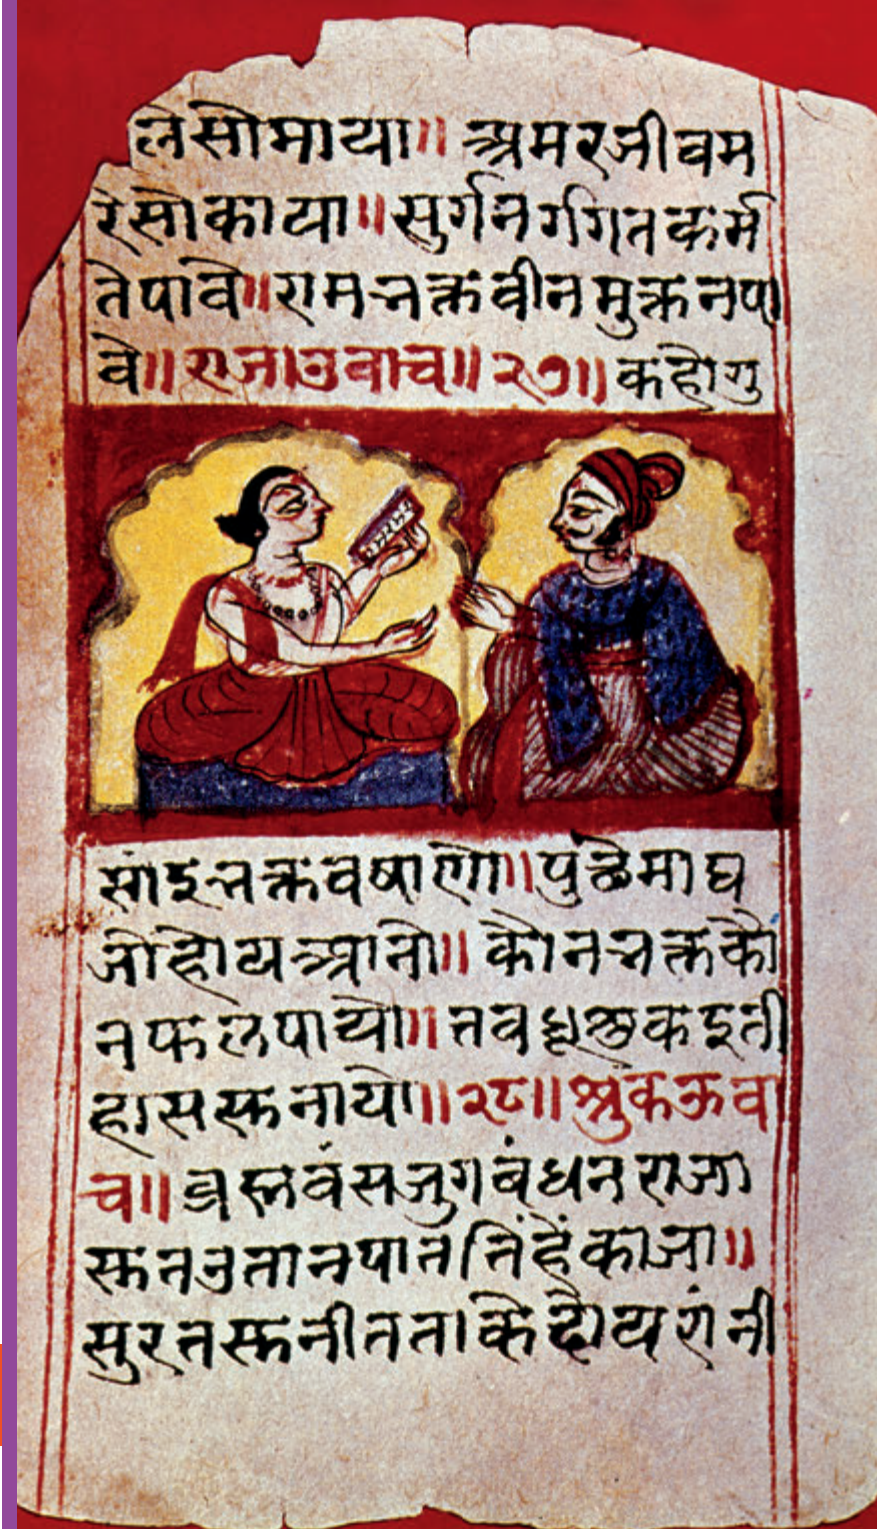 लेसोमाया॥ अमरजीवम
रेसोकाया॥सुर्गनर्गगितकर्म
तेपावे॥रामनक्तवीनमुक्तनपा
वे॥राजाउवाच॥२७॥कहोगु
सांइनक्तवषाणो॥पुछेमाघ
जोहोयअानो॥कोननक्तको
नफलपायो॥तव
हाससुनायो॥२८॥श्रुकऊवा
च॥ब्रह्मवंसजुगबंधनराजा
सुतनुतानपाततिंहेंकाजा॥
सुरतसुनीतताकेदोयरांनी